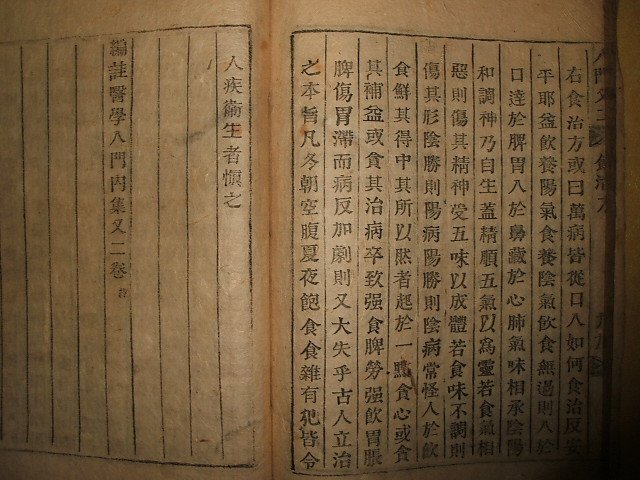 入門又二
食治方
右食治方或曰萬病皆從口入如何食治反安
平耶益飮養陽氣食養陰氣飮食無過則入於
口達於脾胃入於鼻藏於心肺氣味相承陰陽
和調神乃自生蓋精順五氣以爲靈若食氣相
惡則傷其精神受五味以成體若食味不調則
傷其形陰勝則陽病陽勝則陰病常怪人於飮
食鮮其得中其所以然者起於一點貪心或食
其補益或食其治病卒致强食脾勞强飮胃脹
脾傷胃滯而病反加劇則又大失乎古人立治
之本旨凡冬朝空腹夏夜飽食食雜有犯皆令
人疾衞生者愼之
編註醫學入門內集又二卷